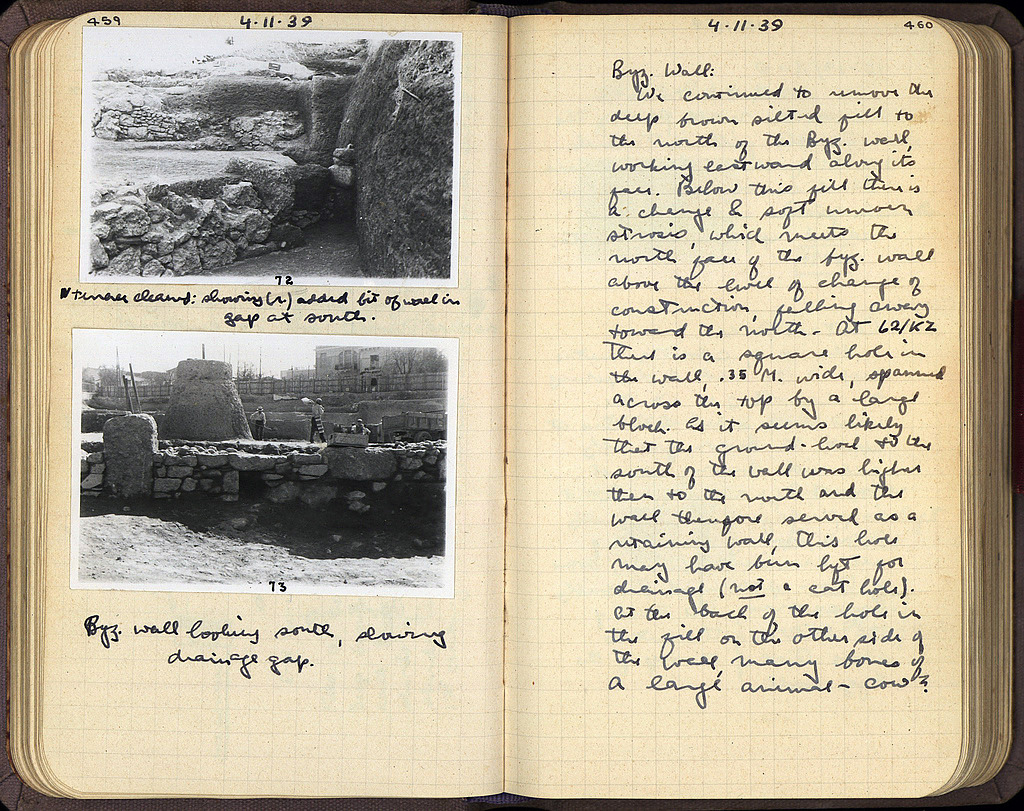 459
4·11·39
72
cleaned: showing (r) added bit of wall in
gap at south.
73
Byz. wall looking south, showing
drainage gap.
4·11·39
460
Byz. Wall:
We continued to remove the
deep brown silted fill to
the north of the Byz. wall,
working eastward along its
face. Below this fill there is
a change to soft
strosis, which meets the
north face of the byz. wall
above the level of change of
construction, falling away
toward the north - At 62/ΚΖ
there is a square hole in
the wall, .35 M. wide, spanned
across the top by a large
block. As it seems likely
that the ground-level to the
south of the wall was higher
then to the north and the
wall therefore served as a
retaining wall, this hole
may have been left for
drainage (not a cat hole).
At the back of the hole in
the fill on the other side of
the wall, many bones of
a large animal - cow?